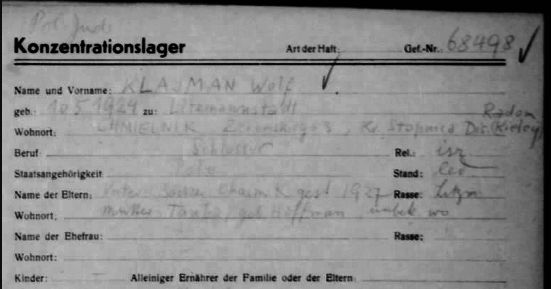 Pol. Jude
Konzentrationslager Art der Haft: Gef.-Nr.: 68498
Name und Vorname: KLAJMAN Wolf
geb.: 10.5.1924 zu: Litzmannstadt
Radom
Wohnort: CHMIELNIK 3, Kr. Stopnica Dis. (Kielce)
Beruf: Schlosser Rel.: isr
Staatsangehörigkeit Pole Stand: led
Name der Eltern: Vater: Chaim K gest 1927 Rasse:
Wohnort: Mutter geb Hoffman unbek wo
Name der Ehefrau: Rasse:
Wohnort:
Kinder: Alleiniger Ernährer der Familie oder der Eltern: